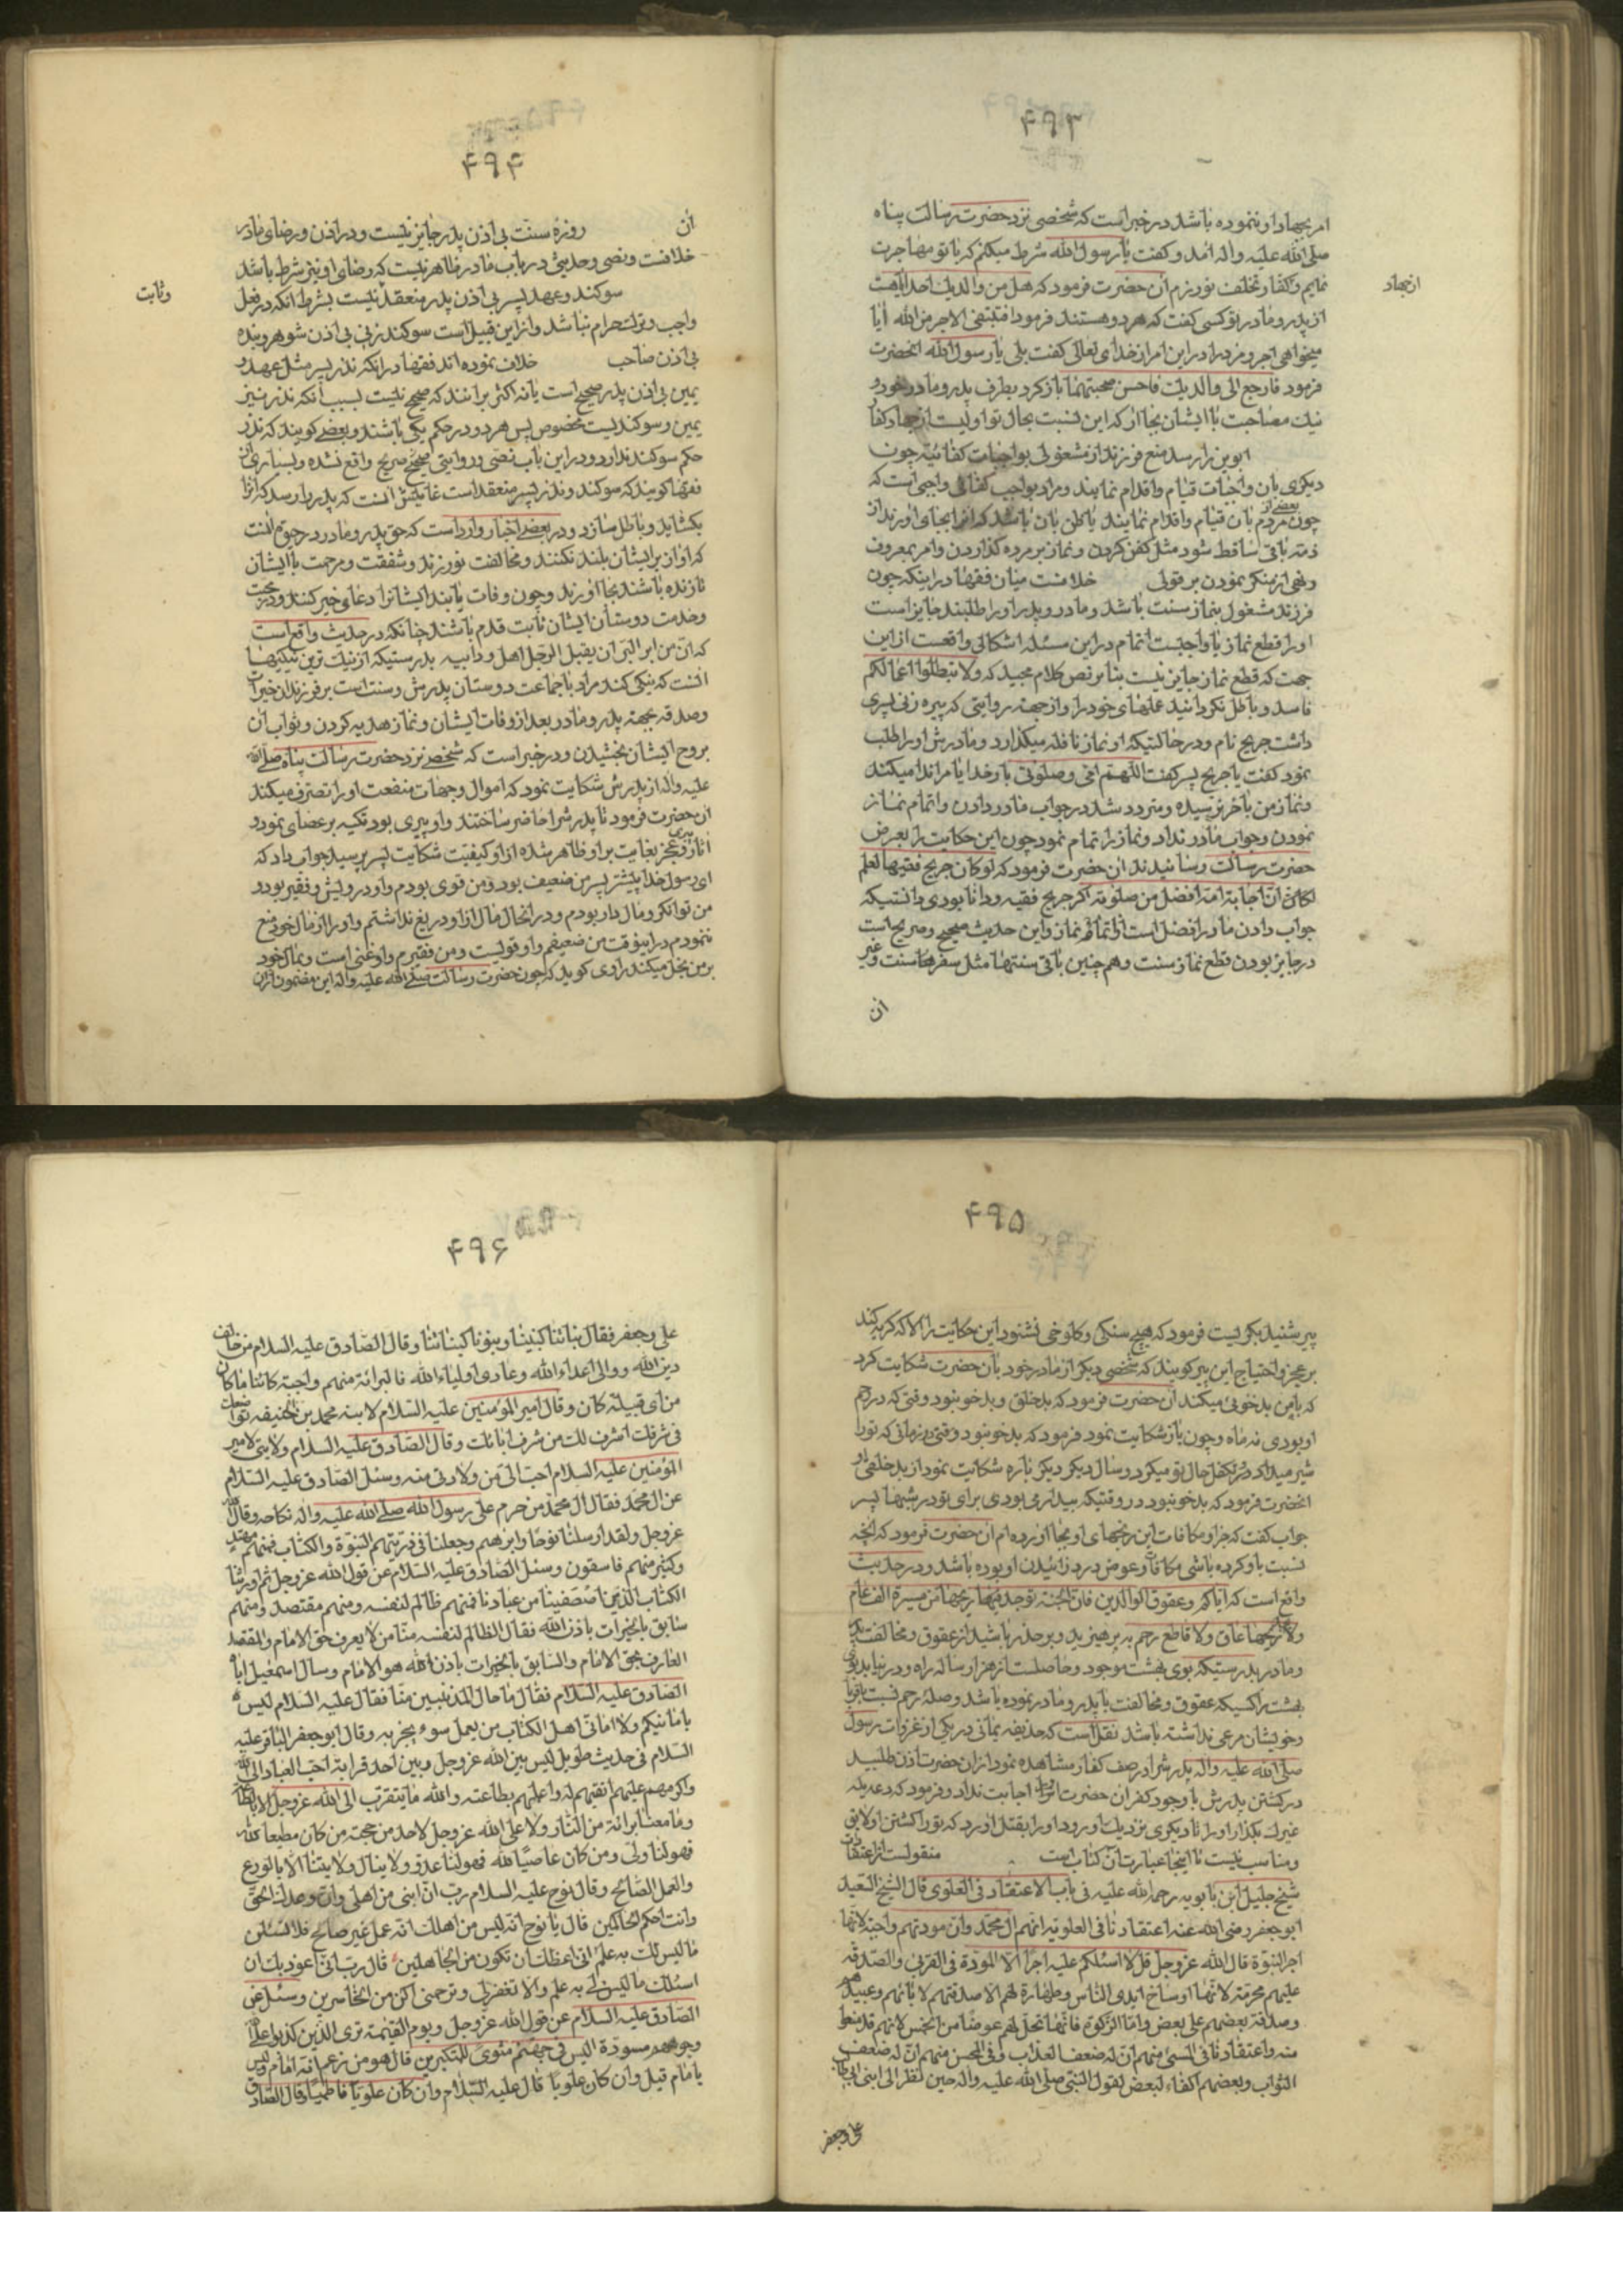 ۴۹۳
امر بجهاد او ننموده باشد در خبر است که شخصی نزد حضرت رسالت پناه
صلی الله علیه و اله امد و کفت یا رسول الله شرط میکنم که با تو مهاجرت
نمایم و کفار تخلف نورزم ان حضرت فرمود که هل من والدیك احد ایا هست
از جهاد
از پدر و مادر تو کسی کفت که هر دو هستند فرمود افتبتغی الاجر من الله ایا
میخواهی اجر و مزد را در این امر از خدای تعالی کفت بلی یا رسول الله انحضرت
فرمود فارجع الی والدیك فاحسن صحبتهما باز کرد بطرف پدر و مادر خود و
نیك مصاحبت با ایشان بجا ار که این نسبت بحال تو اولیست از جهاد کفار
ابوین را رسد منع فرزند از مشغولی بواجبات کفائیه چون
دیکری بان واجبات قیام و اقدام نمایند و مراد بواجب کفائی واجبی است که
چون بعضی از مردم بان قیام و اقدام نمایند یا ظن بان باشد که انرا بجای اورند از
ذمه باقی ساقط شود مثل کفن کردن و نماز بر مرده گذاردن و امر بمعروف
و نهی از منکر نمودن بر قولی خلافست میان فقها در اینکه چون
فرزند مشغول بنماز سنت باشد و مادر و پدر او را طلبند جایز است
او را قطع نماز یا واجبست اتمام در این مسئله اشکالی واقعست از این
جهت که قطع نماز جایز نیست بنا بر نص کلام مجید که ولا تبطلوا اعمالکم
فاسد و باطل نکردانید عملهای خود را و از جهة روایتی که پیره زنی پسری
داشت جریح نام و در حالتیکه او نماز نافله میکذارد و مادرش او را طلب
نمود کفت یا جریح پسر کفت اللهم امی و صلوتی بار خدایا مرا ندا میکند
و نماز من باخر نرسیده و متردد شد در جواب مادر دادن و اتمام نماز
نمودن و جواب مادر نداد و نماز را تمام نمود چون این حکایت را بعرض
حضرت رسالت رسانیدند ان حضرت فرمود که لو کان جریح فقیها لعلم
ان اجابة امه افضل من صلوته اکر جریح فقیه و دانا بودی دانستیکه
جواب دادن مادر افضل است از اتمام نماز و این حدیث صحیح و صریح است
در جایز بودن قطع نماز سنت و هم چنین باقی سنتها مثل سفرهای سنت و غیر
ان
۴۹۴
ان روزهٔ سنت بی اذن پدر جایز نیست و در اذن و رضای مادر
خلافست و نصی و حدیثی در باب مادر ظاهر نیست که رضای او نیز شرط باشد
سوکند و عهد پسر بی اذن پدر منعقد نیست بشرط انکه در فعل
و ثابت
واجب و ترك حرام نباشد و از این قبیل است سوکند زن بی اذن شوهر و بنده
بی اذن صاحب خلاف نموده اند فقها در انکه نذر پسر مثل عهد و
یمین بی اذن پدر صحیح است یا نه اکثر بر انند که صحیح نیست بسبب انکه نذر نیز
یمین و سوکند است مخصوص پس هر دو در حکم یکی باشند و بعضی کویند که نذر
حکم سوکند ندارد و در این باب نصی و روایتی صحیح صریح واقع نشده و بسیاری از
فقها کویند که سوکند و نذر پسر منعقد است غایتش انست که پدر را رسد که انرا
بکشاید و باطل سازد و در بعضی اخبار وارد است که حق پدر و مادر در حیوة انست
که اواز بر ایشان بلند نکنند و مخالفت نورزند و شفقت و مرحمت با ایشان
تا زنده باشند بجا اورند و چون وفات یابند ایشانرا دعای خیر کنند و در محبت
و خدمت دوستان ایشان ثابت قدم باشند چنانکه در حدیث واقع است
که ان من ابر البر ان یقبل الرجل اهل ود ابیه بدرستیکه از نیك ترین نیکیها
انست که نیکی کند مرد با جماعت دوستان پدرش و سنت است بر فرزندان خیرات
و صدقه بجهة پدر و مادر بعد از وفات ایشان و نماز هدیه کردن و ثواب ان
بروح ایشان بخشیدن و در خبر است که شخصی نزد حضرت رسالت پناه صلی الله
علیه و اله از پدرش شکایت نمود که اموال و جهات منفعت او را تصرف میکند
ان حضرت فرمود تا پدرش را حاضر ساختند و او پیری بود تکیه بر عصای نمود و
اثار پیری و عجز بغایت بر او ظاهر شده از او کیفیت شکایت پسر پرسید جواب داد که
ای رسول خدا پیشتر پسر من ضعیف بود و من قوی بودم و او درویش و فقیر بود و
من توانکر و مال دار بودم و در انحال مال از او دریغ نداشتم و او را از مال خود منع
ننمودم در اینوقت من ضعیفم و او قویست و من فقیرم و او غنی است و بمال خود
بر من بخل میکند راوی کوید که چون حضرت رسالت صلی الله علیه و اله این مضمون از ان
۴۹۵
پیر شنید بکریست فرمود که هیچ سنکی و کلوخی نشنود این حکایت را الا که کریه کند
بر عجز و احتیاج این پیر کویند که شخصی دیکر از مادر خود بان حضرت شکایت کرد
که با من بدخوئی میکند ان حضرت فرمود که بدخلق و بدخو نبود وقتی که در رحم
او بودی نه ماه و چون باز شکایت نمود فرمود که بدخو نبود وقتی و زمانی که تو را
شیر میداد و تکفل حال تو میکرد دو سال دیکر دیکر باره شکایت نمود از بدخلقی او
انحضرت فرمود که بدخو نبود در وقتیکه بیدار می بودی برای تو در شبها پسر
جواب کفت که جزا و مکافات این رنجهای او بجا اورده ام ان حضرت فرمود که انچه
نسبت باو کرده باشی مکافات و عوض درد زائیدن او بوده باشد و در حدیث
واقع است که ایاکم و عقوق الوالدین فان الجنة توجد فیها ریحها من مسیرة الف عام
ولا یجد ریحها عاق ولا قاطع رحم بپرهیزید و بر حذر باشید از عقوق و مخالفت پدر
و مادر بدرستیکه بوی بهشت موجود و حاصلست از هزار ساله راه و در نیابد بوی
بهشت را کسیکه عقوق و مخالفت با پدر و مادر نموده باشد و صلهٔ رحم نسبت باقربا
و خویشان مرعی نداشته باشد نقل است که حذیفه یمانی در یکی از غزوات رسول
صلی الله علیه و اله پدرش را در صف کفار مشاهده نمود از ان حضرت اذن طلبید
در کشتن پدرش با وجود کفر ان حضرت او را اجابت نداد و فرمود که دعه یله
غیرك بکذار او را تا دیکری نزدیك او رود و او را بقتل اورد که تو را کشتن او لایق
و مناسب نیست تا اینجا عبارت ان کتاب است منقولست از اعتقادات
شیخ جلیل ابن بابویه رحمه الله علیه فی باب الاعتقاد فی العلوی قال الشیخ السعید
ابو جعفر رضی الله عنه اعتقادنا فی العلویة انهم ال محمد وان مودتهم واجبة لانها
اجر النبوة قال الله عز وجل قل لا اسئلکم علیه اجرا الا المودة فی القربی والصدقة
علیهم محرمة لانها اوساخ ایدی الناس وطهارة لهم الا صدقتهم لامائهم وعبیدهم
وصدقة بعضهم علی بعض واما الزکوة فانها تحل لهم عوضا من الخمس لانهم قد منعوا
منه واعتقادنا فی المسئ منهم ان له ضعف العذاب وفی المحسن منهم ان له ضعف
الثواب وبعضهم اکفاء لبعض لقول النبی صلی الله علیه واله حین نظر الی ابنی ابی طالب
علی وجعفر
۴۹۶
علی وجعفر فقال بناتنا کبنینا وبنونا کبناتنا وقال الصادق علیه السلام من خالف
دین الله ووالی اعداء الله وعادی اولیاء الله فالبرائة منهم واجبة کائنا ما کان
من ای قبیلة کان وقال امیر المؤمنین علیه السلام لابنه محمد بن الحنیفه تواضعك
فی شرفك اشرف لك من شرف ابائك وقال الصادق علیه السلام ولایتی لامیر
المؤمنین علیه السلام احب الی من ولادتی منه وسئل الصادق علیه السلام
عن ال محمد فقال ال محمد من حرم علی رسول الله صلی الله علیه واله نکاحه وقال الله
عز وجل ولقد ارسلنا نوحا وابرهیم وجعلنا فی ذریتهم النبوة والکتاب فمنهم مهتد
وکثیر منهم فاسقون وسئل الصادق علیه السلام عن قول الله عز وجل ثم اورثنا
الکتاب الذین اصطفینا من عبادنا فمنهم ظالم لنفسه ومنهم مقتصد ومنهم
سابق بالخیرات باذن الله فقال الظالم لنفسه منا من لا یعرف حق الامام والمقتصد
العارف بحق الامام والسابق بالخیرات باذن الله هو الامام وسال اسمعیل اباه
الصادق علیه السلام فقال ما حال المذنبین منا فقال علیه السلام لیس
بامانیکم ولا امانی اهل الکتاب من یعمل سوء یجز به وقال ابو جعفر الباقر علیه
السلام فی حدیث طویل لیس بین الله عز وجل وبین احد قرابة احب العباد الی الله
واکرمهم علیهم اتقیهم له واعلمهم بطاعته والله ما یتقرب الی الله عز وجل الا بالطاعة
وما معنا برائة من النار ولا علی الله عز وجل لاحد من حجة من کان مطیعا لله
فهو لنا ولی ومن کان عاصیا لله فهو لنا عدو ولا ینال ولایتنا الا بالورع
والعمل الصالح وقال نوح علیه السلام رب ان ابنی من اهلی وان وعدك الحق
وانت احکم الحاکمین قال یا نوح انه لیس من اهلك انه عمل غیر صالح فلا تسئلن
ما لیس لك به علم انی اعظك ان تکون من الجاهلین قال رب انی اعوذ بك ان
اسئلك ما لیس لی به علم والا تغفر لی وترحمنی اکن من الخاسرین وسئل عن
الصادق علیه السلام عن قول الله عز وجل ویوم القیمة تری الذین کذبوا علی الله
وجوههم مسودة الیس فی جهنم مثوی للمتکبرین قال هو من زعم انه امام ولیس
بامام قیل وان کان علویا قال علیه السلام وان کان علویا فاطمیا وقال الصادق